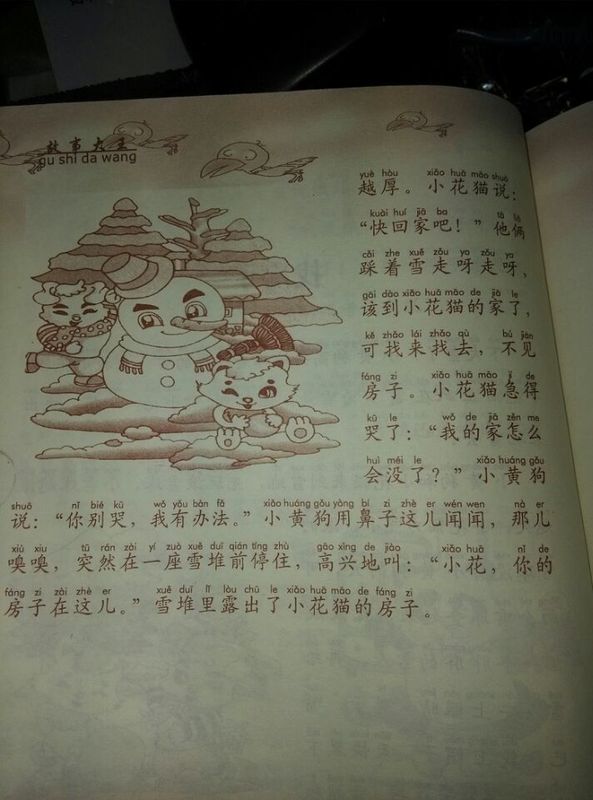 故事大王
gu shi da wang
yuè hòu xiǎo huā māo shuō
越厚。小花猫说：
kuài huí jiā ba tā liǎ
“快回家吧！”他俩
cǎi zhe xuě zǒu ya zǒu ya
踩着雪走呀走呀，
gāi dào xiǎo huā māo de jiā le
该到小花猫的家了，
kě zhǎo lái zhǎo qù bú jiàn
可找来找去，不见
fáng zi xiǎo huā māo jí de
房子。小花猫急得
kū le wǒ de jiā zěn me
哭了：“我的家怎么
huì méi le xiǎo huáng gǒu
会没了？”小黄狗
shuō nǐ bié kū wǒ yǒu bàn fǎ xiǎo huáng gǒu yòng bí zi zhè er wén wen nà er
说：“你别哭，我有办法。”小黄狗用鼻子这儿闻闻，那儿
xiù xiu tū rán zài yí zuò xuě duī qián tíng zhù gāo xìng de jiào xiǎo huā nǐ de
嗅嗅，突然在一座雪堆前停住，高兴地叫：“小花，你的
fáng zi zài zhè er xuě duī lǐ lòu chū le xiǎo huā māo de fáng zi
房子在这儿。”雪堆里露出了小花猫的房子。